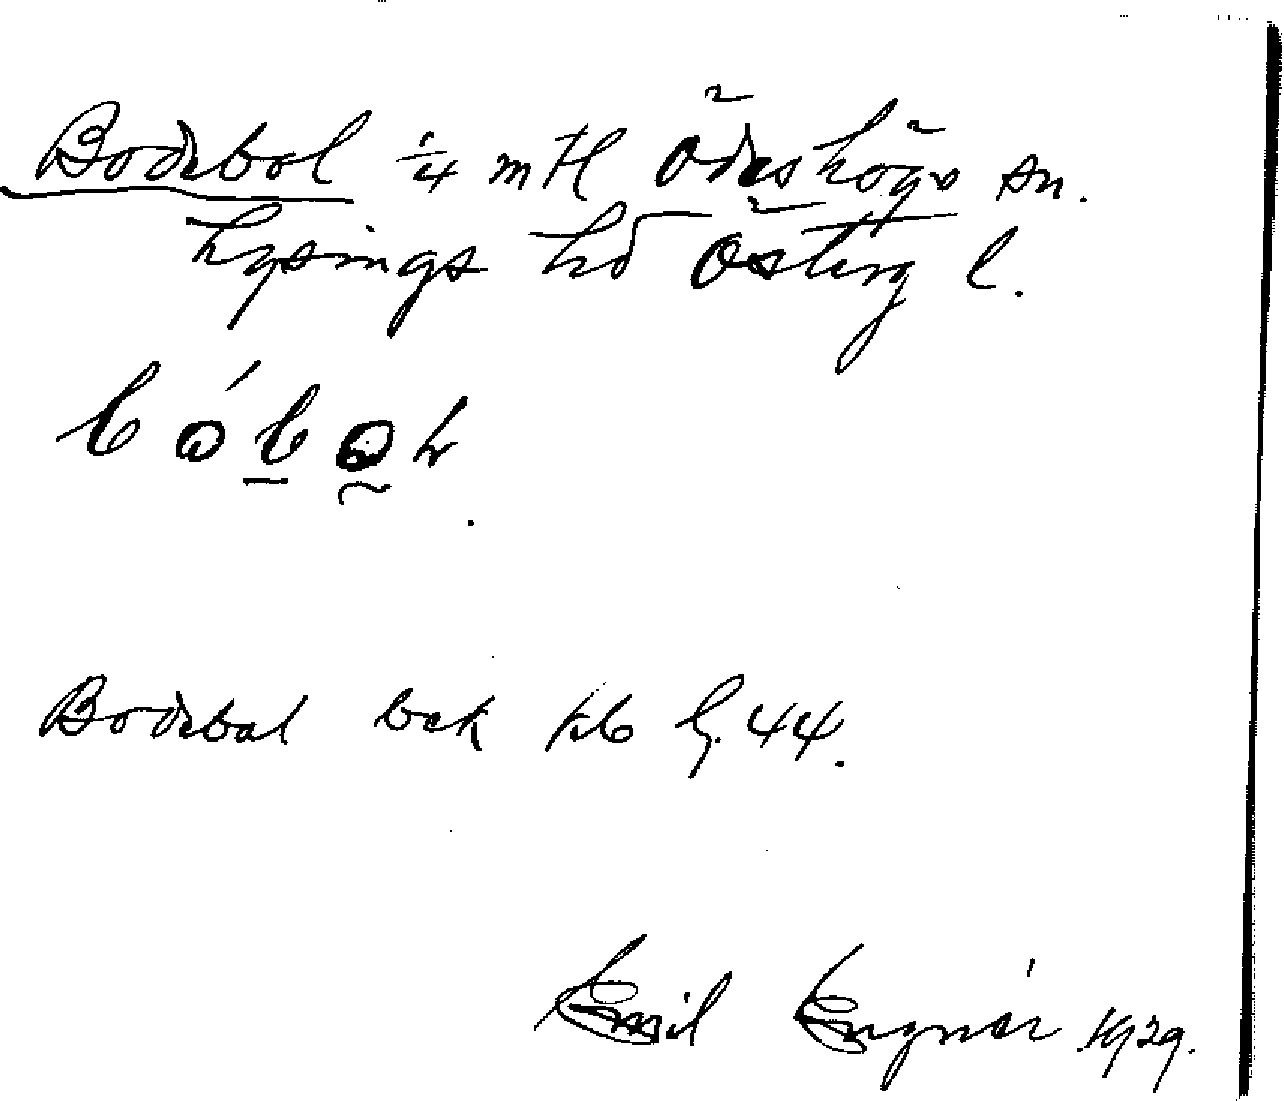 Bodebol 1/4 mtl Ödeshögs sn.
Lysings hd Österg l.
Bodebol bek kb h 44.
Emil Engnér 1929.